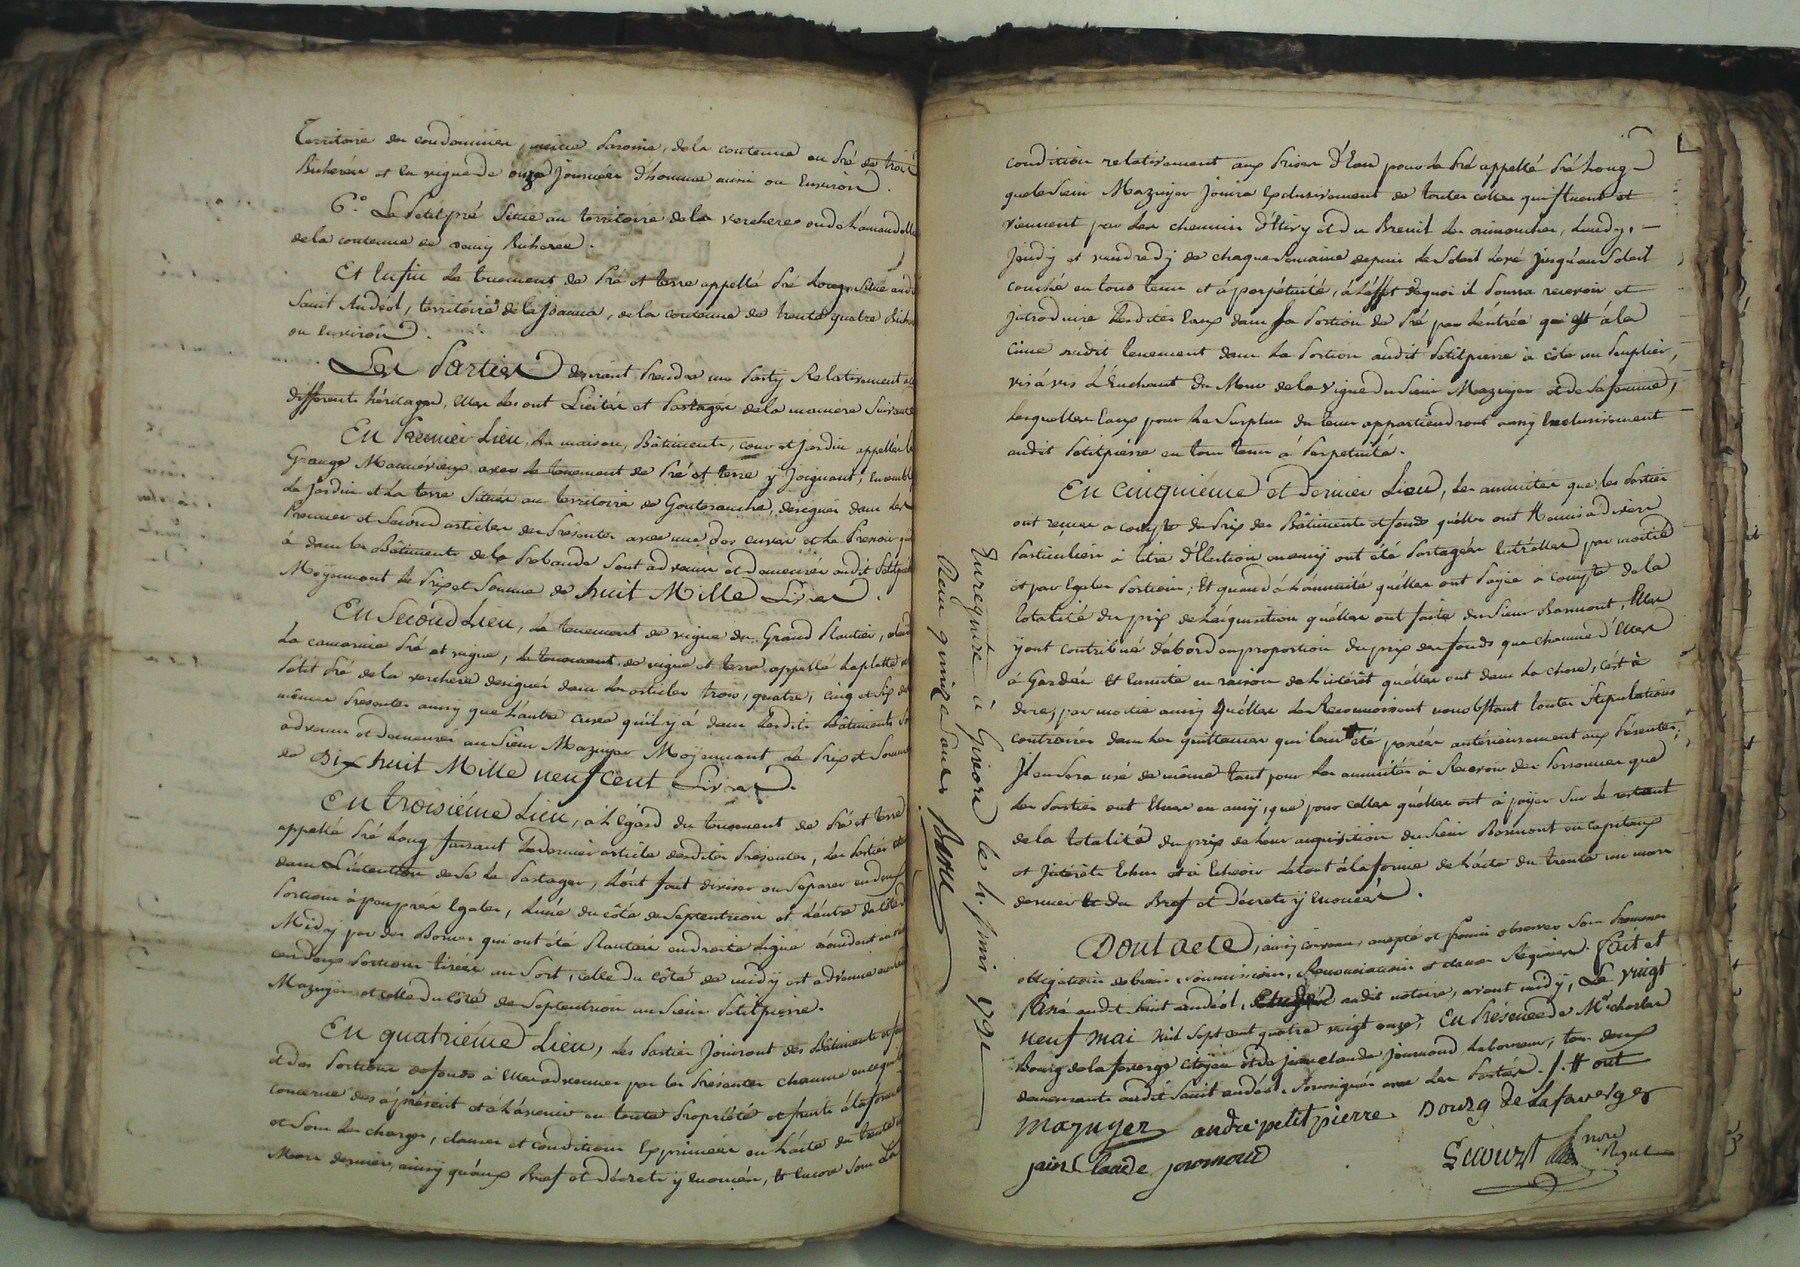 Territoire du coudominier, même Paroisse, de la contenue en Pré de trois
Bicherées et la vigne de onze Journées d'hommes aussi ou Environ.
6.° Le Petit pré Situé au territoire de la verchere ou de
de la contenue de Bicherée.
Et Enfin Le tenement de Pré et terre appellé Pré Long, Situé audit
Saint Andéol, territoire de la Joanna, de la contenue de trente quatre Bicherées
ou Environ.
Les Parties desirant Prendre un Party Relativement
differents héritages, Elles les ont Licités et Partagés de la maniere Suivante
En Premier Lieu, La maison, Bâtiments, cour et Jardin appellés la
Grange avec le tenement de Pré et terre y Joignant, Ensemble
Le Jardin et La terre Située au territoire de designés dans Les
Premier et Second articles des Présentes avec une des cuves et Le Pressoir qui
a dans les Bâtiments de la Probande Sont advenus et demeurés audit Petitpierre
Moÿennant Le Prix et Somme de huit Mille Livres.
En Second Lieu, Le tenement de vigne du Grand Plantier, celui
La Pré et vigne, Le tenement de vigne et terre appellé Laplatte et
Petit Pré de la verchere designés dans Les articles trois, quatre, cinq et Six des
mêmes Présentes ainsy que L'autre cuve qu'il y a dans Lesdits Bâtiments Sont
advenus et demeurés au Sieur Mazuyer Moÿennant Le Prix et Somme
de Dix huit Mille neuf cent Livres.
En troisième Lieu, a L'egard du tenement de Pré et terre
appellé Pré Long faisant Le dernier article desdites Présentes, Les Parties étant
dans L'intention de Se Le Partager, L'ont fait diviser ou Separer en deux
Portions à peu près Egales, L'une du côté de Septentrion et L'autre du côté de
Midy par des Bornes qui ont été Plantées en droite Ligne
ces deux Portions tirées au Sort, celle du côté de midy est advenue au Sieur
Mazuyer et celle du Côté de Septentrion au Sieur Petitpierre.
En quatrième Lieu, Les Parties Joüiront des Bâtiments et fonds
et des Portions de fonds à Elles advenues par les Présentes chacune en ce qui
concerne dès à présent et à L'avenir en toute Propriété et fruits à la forme
et Sous Les charges, clauses et conditions Exprimées en L'acte du trente un
Mars dernier, ainsy qu'aux Bref et décrets y Enoncés, Et Encore Sous La
condition relativement aux Prises d'Eau pour Le Pré appellé Pré Long
que le Sieur Mazuyer Jouira Exclusivement de toutes celles qui fluent et
viennent par Les chemins d'Hiry et du Breuil Les Dimanches, Lundy,
Jeudy et vendredy de chaque Semaine depuis Le Soleil Levé Jusqu'au Soleil
couché en tous tems et à perpétuité, à L'effet de quoi il Pourra recevoir et
Jntroduire Lesdites Eaux dans Sa Portion de Pré par L'entrée qui est à la
cime dudit tenement dans La Portion audit Petitpierre à côté un Peuplier,
vis à vis L'Enchant du Mur de la vigne du Sieur Mazuyer et de Sa femme,
Lesquelles Eaux pour Le Surplus du tems appartiendront aussy Exclusivement
audit Petitpierre en tous tems à Perpétuité.
En cinquième et dernier Lieu, Les annuités que les Parties
ont reçues à compte du Prix des Bâtiments et fonds qu'elles ont Remis à divers
Particuliers à titre d'Election en amy ont été Partagées Entr'elles par moitié
et par Egales Portions; Et quand à L'annuité qu'elles ont Payée à compte de la
totalité du prix de L'acquisition qu'elles ont faite du Sieur Bormont, Elles
y ont contribué d'abord en proportion du prix des fonds que chacune d'Elles
à Gardés Et Ensuite en raison de L'intérêt qu'elles ont dans La chose, c'est à
dire, par moitié ainsy qu'elles Le Reconnoissent nonobstant toutes Stipulations
contraires dans Les quittances qui leur ont été passées antérieurement aux Présentes;
Jl en Sera usé de même tant pour Les annuités à Recevoir des Personnes que
Les Parties ont Elues en amy, que pour celles qu'elles ont à payer Sur Le restant
de la totalité du prix de Leur acquisition du Sieur Bormont en capitaux
et Jntérêts Echus et à Echeoir Le tout à la forme de L'acte du trente un mars
dernier Et du Bref et décrets y Enoncés.
Dont acte, ainsy convenu, accepté et Promis observer Sous Promesses
obligation de biens, Soumissions, Renonciations et clauses Requises. fait et
Passé audit Saint andéol, Etude dudit notaire, avant midy, Le vingt
neuf mai mil Sept cent quatre vingt onze, En Présence de M.e charles
Bourg de la faverge citoyen et de jean claude journoud Laboureur, tous deux
demeurants audit Saint andéol, Soussignés avec Les Parties. /. H ont
Mazuyer andre petitpierre Bourg de Lafaverge
jean Claude journoud
Enregistré à Givors le 4. juin 1791
Reçu quinze Sous